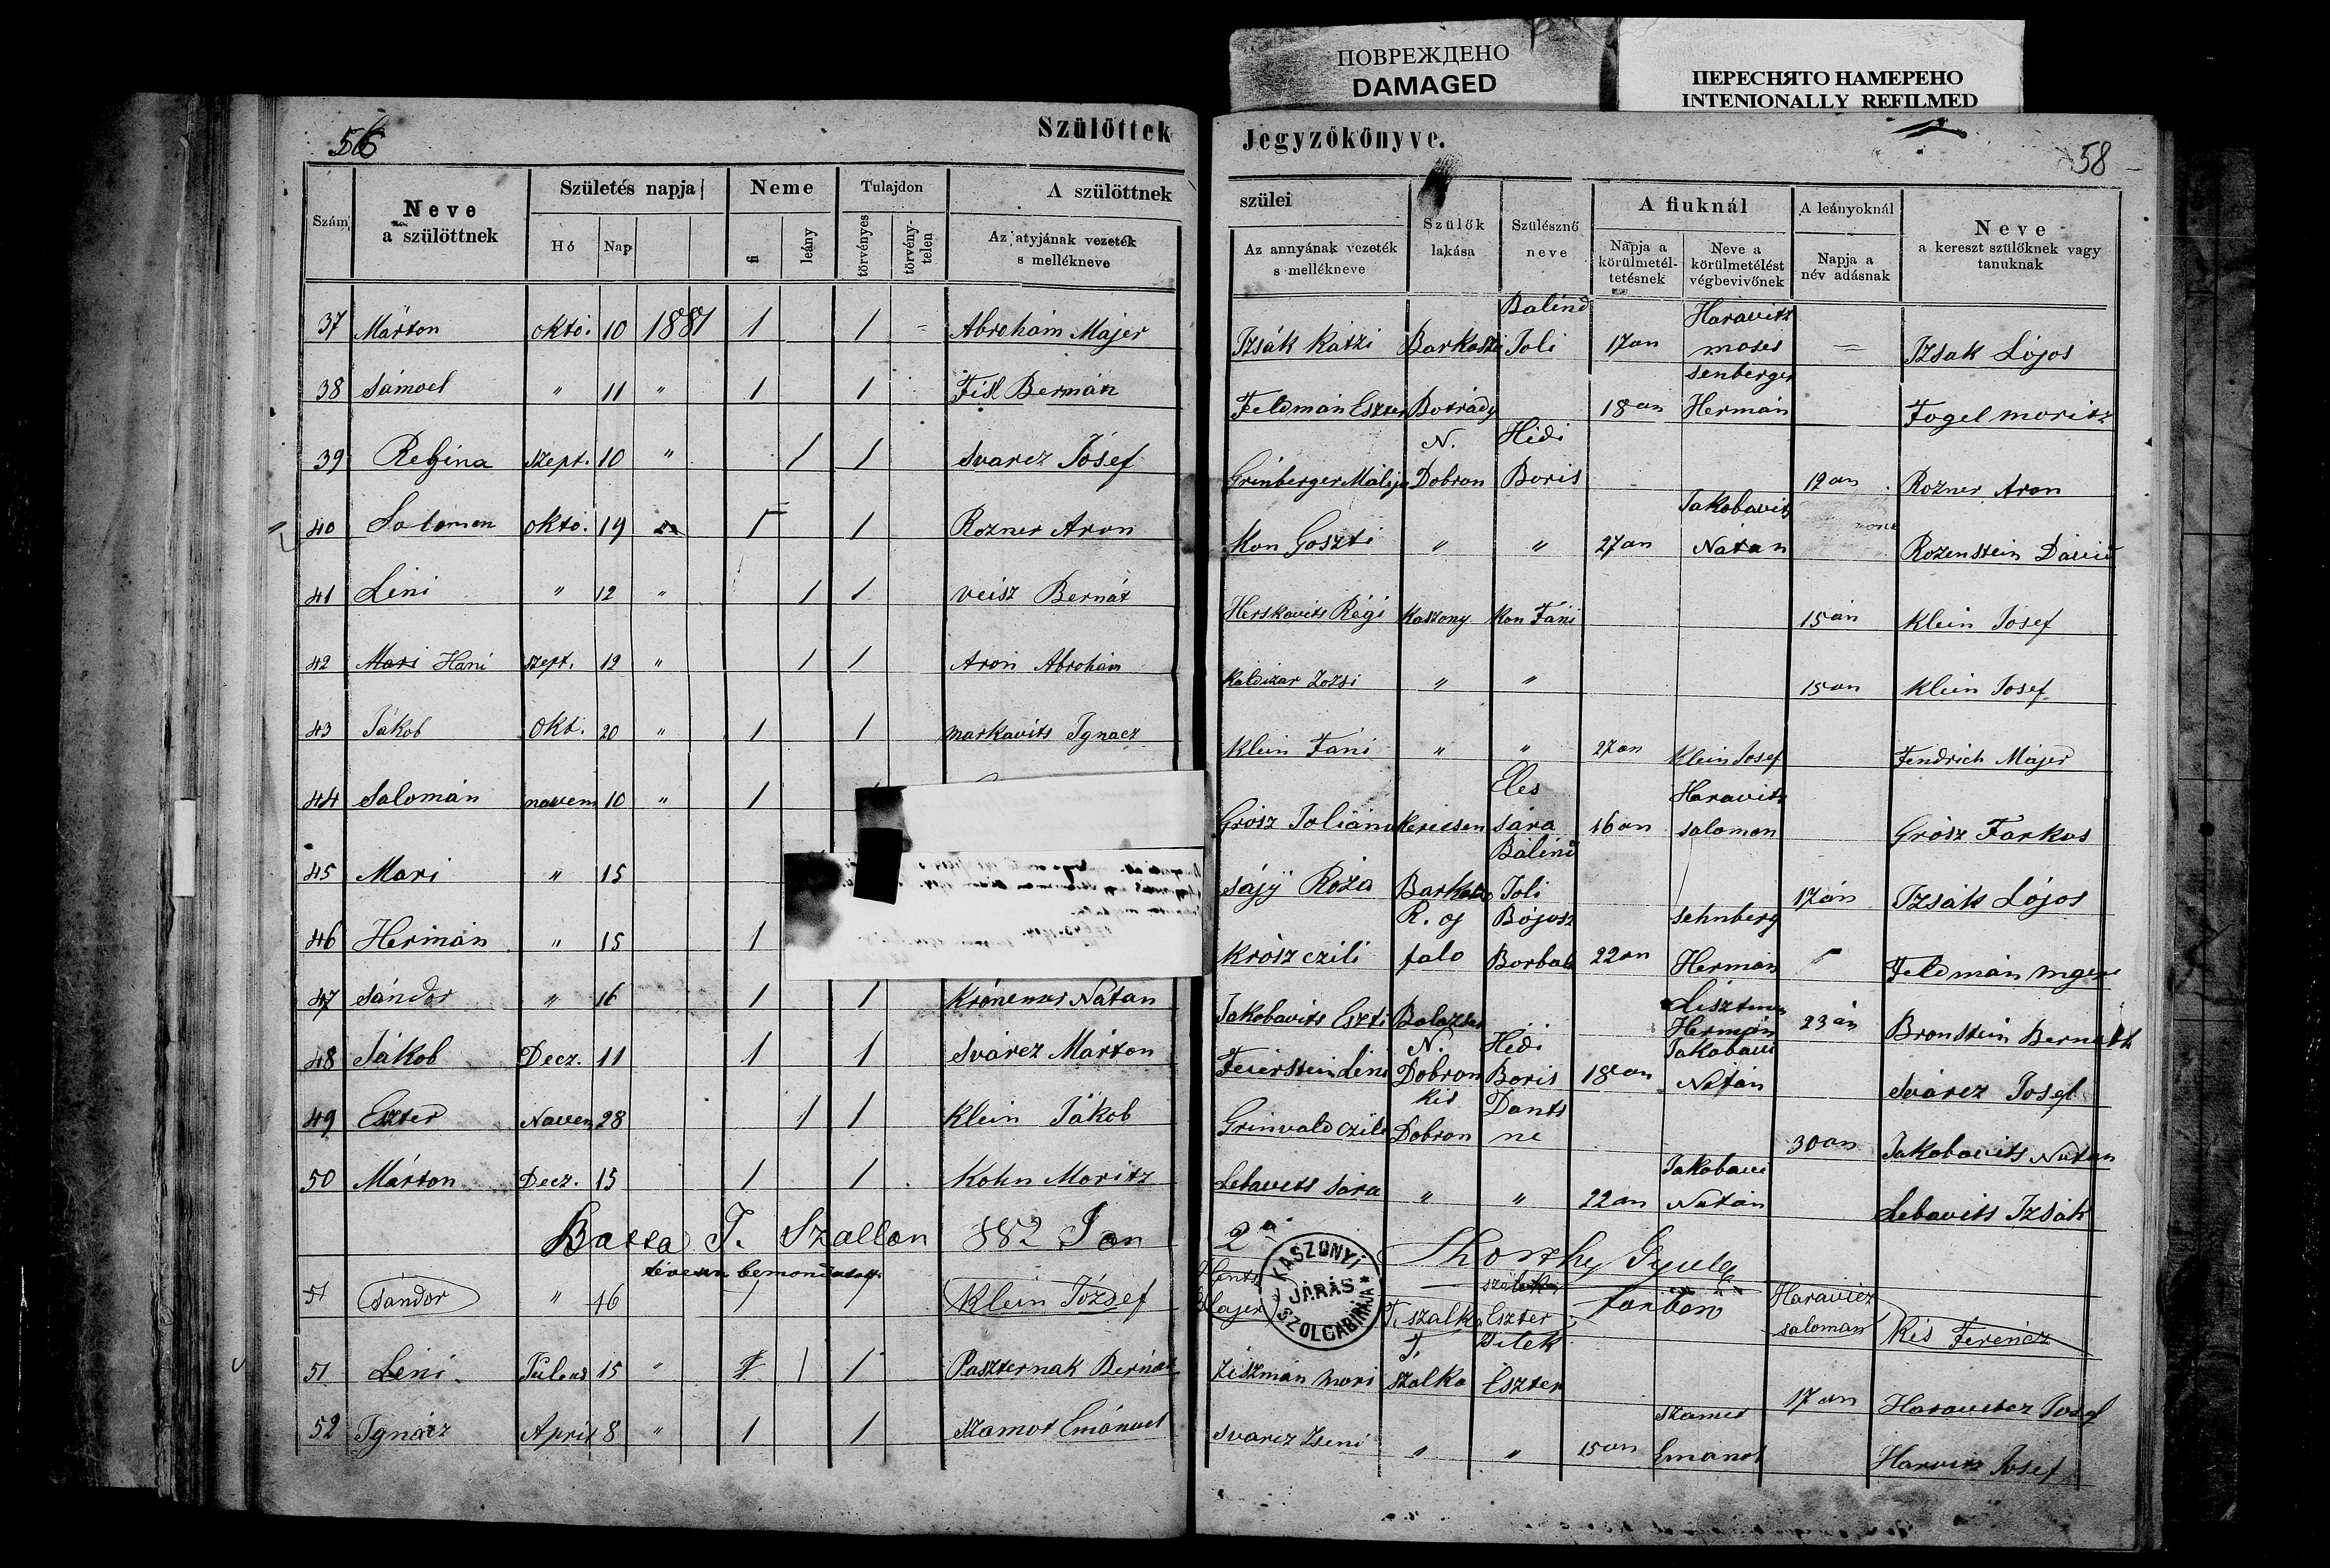 ПОВРЕЖДЕНО
DAMAGED
ПЕРЕСНЯТО НАМЕРЕНО
INTENIONALLY REFILMED
56
Szülöttek
Jegyzőkönyve.
58
Szám
Neve
a szülöttnek
Születés napja
Hó Nap
Neme
fi leány
Tulajdon
törvényes törvény-telen
A szülöttnek
Az atyjának vezeték
s mellékneve
szülei
Az annyának vezeték
s mellékneve
Szülők
lakása
Szülésznő
neve
A fiuknál
Napja a
körülmetél-
tetésnek
Neve a
körülmetélést
végbevivőnek
A leányoknál
Napja a
név adásnak
Neve
a kereszt szülőknek vagy
tanuknak
37 Márton októ. 10 1881 1 1 Abrohám Majer Izsák Katzi Barkaszo Balind Joli 17an Haravitz moses Izsak Lójos
38 Sámoel " 11 " 1 1 Fisl Bermán Feldmán Eszter Botrády 18an Senberger Hermán Fogel moritz
39 Regina szept. 10 " 1 1 Svarcz Jósef Grinberger Máli N. Dobron Hidi Boris 12an Rozner Aron
40 Salomon októ. 19 " 1 1 Rozner Aron Kon Goszti " " 27an Jakobavits Natan Rozenstein Dávid
41 Lini " 12 " 1 1 veisz Bernát Herskovits Régi Kaszony Kon Fáni 15án Klein Josef
42 Mari Hani szept. 12 " 1 1 Aron Abrohám Zozsi " " 15an Klein Josef
43 Jákob Okt. 20 " 1 1 markavits Ignacz Klein Fáni " " 27an Klein Josef Fendrich Májer
44 Salomán novem 10 " 1 Grósz Joliána Kerecsen Eles sára 16an Haravitz salomon Grósz Farkas
45 Mari " 15 Róza Barkaszo Balind Joli 17án Izsák Lójos
46 Hermán " 15 1 Krósz czili falo Bojosz Borbala 22an Sehnberg Hermán Feldmán
47 Sándor " 16 1 1 Natan Jakobavits Eszti Hermán 23án Bronstein Bernath
48 Jákob Decz. 11 1 1 Svárcz Márton Feierstein Leni N. Dobron Hidi Boris 18an Jakobavi Natán Svárcz Josef
49 Eszter Novem 28 1 1 Klein Jákob Grinvald Czili Kis Dobron Dants ne 30an Jakobavits Natan
50 Márton Decz. 15 1 1 Kohn Moritz Lebavits Sara " " 22an Jakobavi Natán Lebavits Izsák
T. Szallon 882 Jan 2
KASZONYI JÁRÁS SZOLGABIRÁJA
51 Sándor " 16 1 1 Klein József T. szalka Eszter Haravicz saloman Kis Ferencz
51 Léni 15 " 1 1 Paszternak Bernat Ziszmán Mari T. szalka Pitek Eszter 17an Josef
52 Ignácz April 8 " 1 1 Szamot Emánuel Svarcz Zseni " " 15an Emanol Josef